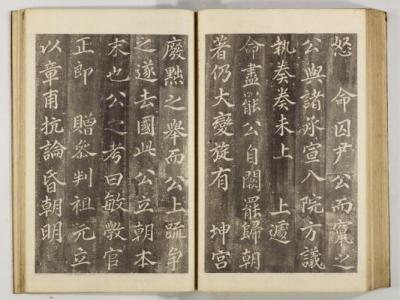 怒　命囚尹公而竄之
公與諸承宣入院方議
執奏奏未上　上遞
命盡罷公自闕罷歸朝
著仍大變旋有　坤宮
廢黜之擧而公上疏爭
之遂去國此公立朝本
末也公之考曰敏敎官
正郎　贈參判祖元立
以章甫抗論昏朝明